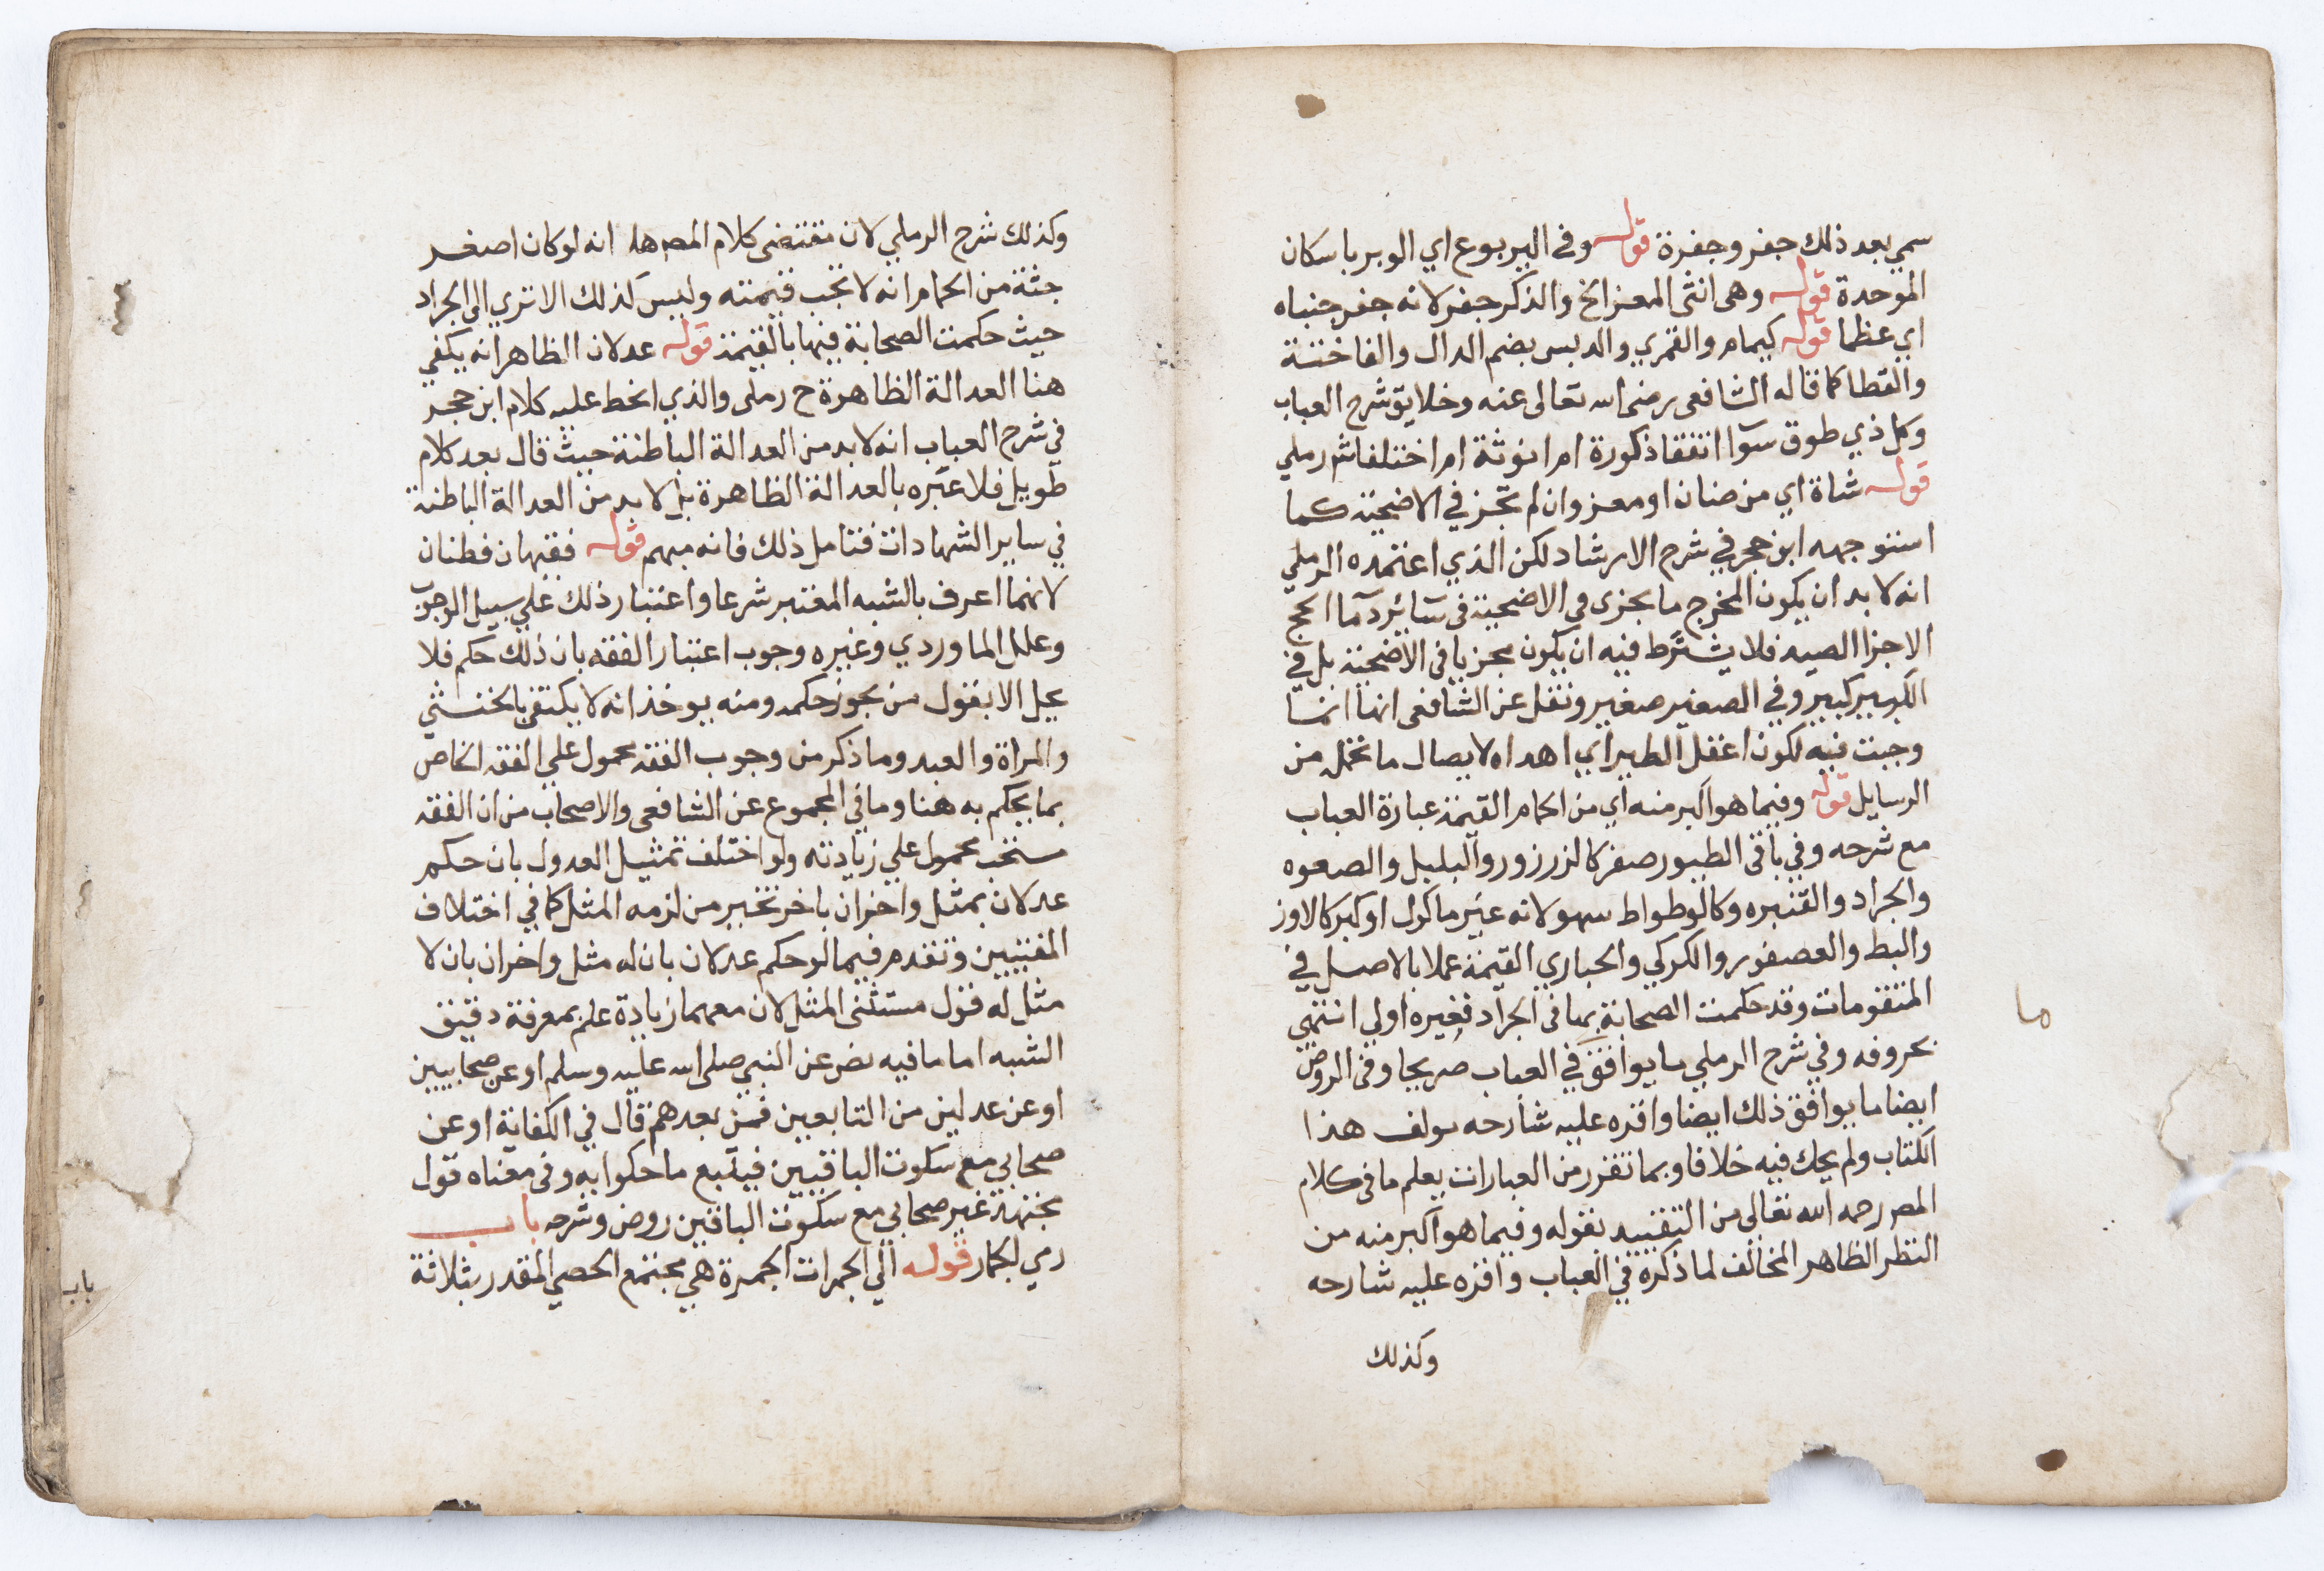 سمي بعد ذلك جفر وجفرة قوله وفي اليربوع اي الوبر باسكان
الموحدة قوله وهى انثى المعز الخ والذكر جفر لانه جفر جنباه
اي عظما قوله كيمام والقمري والدبس بضم الدال والفاختة
والقطا كما قاله الشافعى رضى الله تعالى عنه وخلايق شرح العباب
وكل ذي طوق سوآ اتفقا ذكورة ام انوثة ام اختلفا شرملي
قوله شاة اي من ضان او معز وان لم تجز في الاضحية كما
استوجهه ابن حجر في شرح الارشاد لكن الذي اعتمده الرملي
انه لا بد ان يكون المخرج ما يجزى في الاضحية في سآئر دمآ الحج
الا جزا الصيد فلا يشترط فيه ان يكون مجزيا في الاضحية بل في
الكبير كبير وفي الصغير صغير ونقل عن الشافعى انها انما
وجبت فيه لكون اغفل الطير اي اهداه لايصال ما تحمل من
الرسايل قوله وفيما هو اكبر منه اي من الحمام القيمة عبارة العباب
مع شرحه وفي باقى الطيور صغر كالزرزور والبلبل والصعوه
والجراد والقنبره وكالوطواط سهو لانه غير ماكول او كبر كالاوز
والبط والعصفور والكركي والحباري القيمة عملا بالاصل في
المتقومات وقد حكمت الصحابة بها في الجراد فغيره اولي انتهي
بحروفه وفي شرح الرملي ما يوافق في العباب صريحا وفى الروض
ايضا ما يوافق ذلك ايضا واقره عليه شارحه مولف هذا
الكتاب ولم يحك فيه خلافا وبما تقرر من العبارات يعلم ما فى كلام
المصر رحمه الله تعالي من التقييد بقوله وفيما هو اكبر منه من
النظر الظاهر المخالف لما ذكره في العباب واقره عليه شارحه
وكذلك
ما
وكذلك شرح الرملي لان مقتضى كلام المصر هذا انه لو كان اصغر
جثة من الحمام انه لا تجب قيمته وليس كذلك الا تري الى الجراد
حيث حكمت الصحابة فيها بالقيمة قوله عدلان الظاهر انه يكفي
هنا العدالة الظاهرة ح رملى والذي انحط عليه كلام ابن حجر
في شرح العباب انه لا بد من العدالة الباطنة حيث قال بعد كلام
طويل فلا عبره بالعدالة الظاهرة بل لا بد من العدالة الباطنة
في ساير الشهادات فتامل ذلك فانه مبهم قوله فقيهان فطنان
لانهما اعرف بالشبه المعتبر شرعا واعتبار ذلك علي سبيل الوجوب
وعلل الماوردي وغيره وجوب اعتبار الفقه بان ذلك حكم فلا
يحل الا بقول من يجوز حكمه ومنه يوخذ انه لا يكتفي بالخنثي
والمراة والعبد وما ذكر من وجوب الفقه محمول علي الفقه الخاص
بما يحكم به هنا وما في المجموع عن الشافعى والاصحاب من ان الفقه
مستحب محمول علي زيادته ولو اختلف تمثيل العدول بان حكم
عدلان بمثل واخران باخر تخير من لزمه المثل كما في اختلاف
المفتيين وتقدم فيما لو حكم عدلان بان له مثل واخران بان لا
مثل له قول مستثنى المثل لان معهما زيادة علم بمعرفة دقيق
الشبه اما ما فيه نص عن النبي صلى الله عليه وسلم او عن صحابيين
او عن عدلين من التابعين فمن بعدهم قال في الكفاية او عن
صحابي مع سكوت الباقيين فيتبع ما حكوا به وفى معناه قول
مجتهد غير صحابي مع سكوت الباقين روض وشرحه باب
رمي الجمار قوله الي الجمرات الجمرة هي مجتمع الحصي المقدر بثلاثة
باب